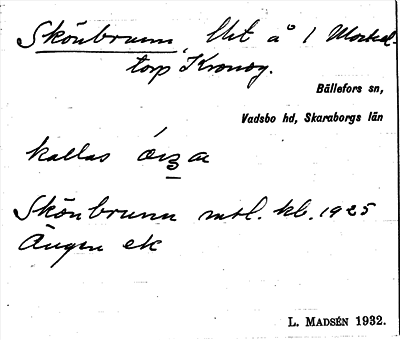 Skönbrunn, lht å 1 Morkul-
torp Kronog.
Bällefors sn,
Vadsbo hd, Skaraborgs län
kallas
Skönbrunn mtl. kb. 1925
Ängen ek
L. MADSÉN 1932.